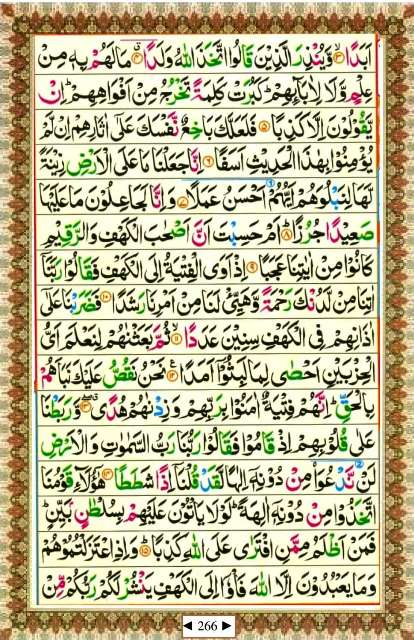 اَبَدًا ۙ﴿۳﴾ وَّیُنۡذِرَ الَّذِیۡنَ قَالُوا اتَّخَذَ اللّٰهُ وَلَدًا ۙ﴿۴﴾ مَا لَهُمۡ بِهٖ مِنۡ
عِلۡمٍ وَّلَا لِاٰبَآئِهِمۡ ؕ كَبُرَتۡ كَلِمَةً تَخۡرُجُ مِنۡ اَفۡوَاهِهِمۡ ؕ اِنۡ
یَّقُوۡلُوۡنَ اِلَّا كَذِبًا ﴿۵﴾ فَلَعَلَّكَ بَاخِعٌ نَّفۡسَكَ عَلٰۤی اٰثَارِهِمۡ اِنۡ لَّمۡ
یُؤۡمِنُوۡا بِهٰذَا الۡحَدِیۡثِ اَسَفًا ﴿۶﴾ اِنَّا جَعَلۡنَا مَا عَلَی الۡاَرۡضِ زِیۡنَةً
لَّهَا لِنَبۡلُوَهُمۡ اَیُّهُمۡ اَحۡسَنُ عَمَلًا ﴿۷﴾ وَ اِنَّا لَجٰعِلُوۡنَ مَا عَلَیۡهَا
صَعِیۡدًا جُرُزًا ؕ﴿۸﴾ اَمۡ حَسِبۡتَ اَنَّ اَصۡحٰبَ الۡكَهۡفِ وَ الرَّقِیۡمِ
كَانُوۡا مِنۡ اٰیٰتِنَا عَجَبًا ﴿۹﴾ اِذۡ اَوَی الۡفِتۡیَةُ اِلَی الۡكَهۡفِ فَقَالُوۡا رَبَّنَاۤ
اٰتِنَا مِنۡ لَّدُنۡكَ رَحۡمَةً وَّ هَیِّئۡ لَنَا مِنۡ اَمۡرِنَا رَشَدًا ﴿۱۰﴾ فَضَرَبۡنَا عَلٰۤی
اٰذَانِهِمۡ فِی الۡكَهۡفِ سِنِیۡنَ عَدَدًا ﴿ۙ۱۱﴾ ثُمَّ بَعَثۡنٰهُمۡ لِنَعۡلَمَ اَیُّ
الۡحِزۡبَیۡنِ اَحۡصٰی لِمَا لَبِثُوۡۤا اَمَدًا ﴿۱۲﴾ نَحۡنُ نَقُصُّ عَلَیۡكَ نَبَاَهُمۡ
بِالۡحَقِّ ؕ اِنَّهُمۡ فِتۡیَةٌ اٰمَنُوۡا بِرَبِّهِمۡ وَ زِدۡنٰهُمۡ هُدًی ﴿۱۳﴾ وَّ رَبَطۡنَا
عَلٰی قُلُوۡبِهِمۡ اِذۡ قَامُوۡا فَقَالُوۡا رَبُّنَا رَبُّ السَّمٰوٰتِ وَ الۡاَرۡضِ
لَنۡ نَّدۡعُوَا۠ مِنۡ دُوۡنِهٖۤ اِلٰـهًا لَّقَدۡ قُلۡنَاۤ اِذًا شَطَطًا ﴿۱۴﴾ هٰۤؤُلَآءِ قَوۡمُنَا
اتَّخَذُوۡا مِنۡ دُوۡنِهٖۤ اٰلِهَةً ؕ لَوۡ لَا یَاۡتُوۡنَ عَلَیۡهِمۡ بِسُلۡطٰنٍۭ بَیِّنٍ ؕ
فَمَنۡ اَظۡلَمُ مِمَّنِ افۡتَرٰی عَلَی اللّٰهِ كَذِبًا ﴿ؕ۱۵﴾ وَ اِذِ اعۡتَزَلۡتُمُوۡهُمۡ
وَ مَا یَعۡبُدُوۡنَ اِلَّا اللّٰهَ فَاۡ وٗۤا اِلَی الۡكَهۡفِ یَنۡشُرۡ لَكُمۡ رَبُّكُمۡ مِّنۡ
◄ 266 ►